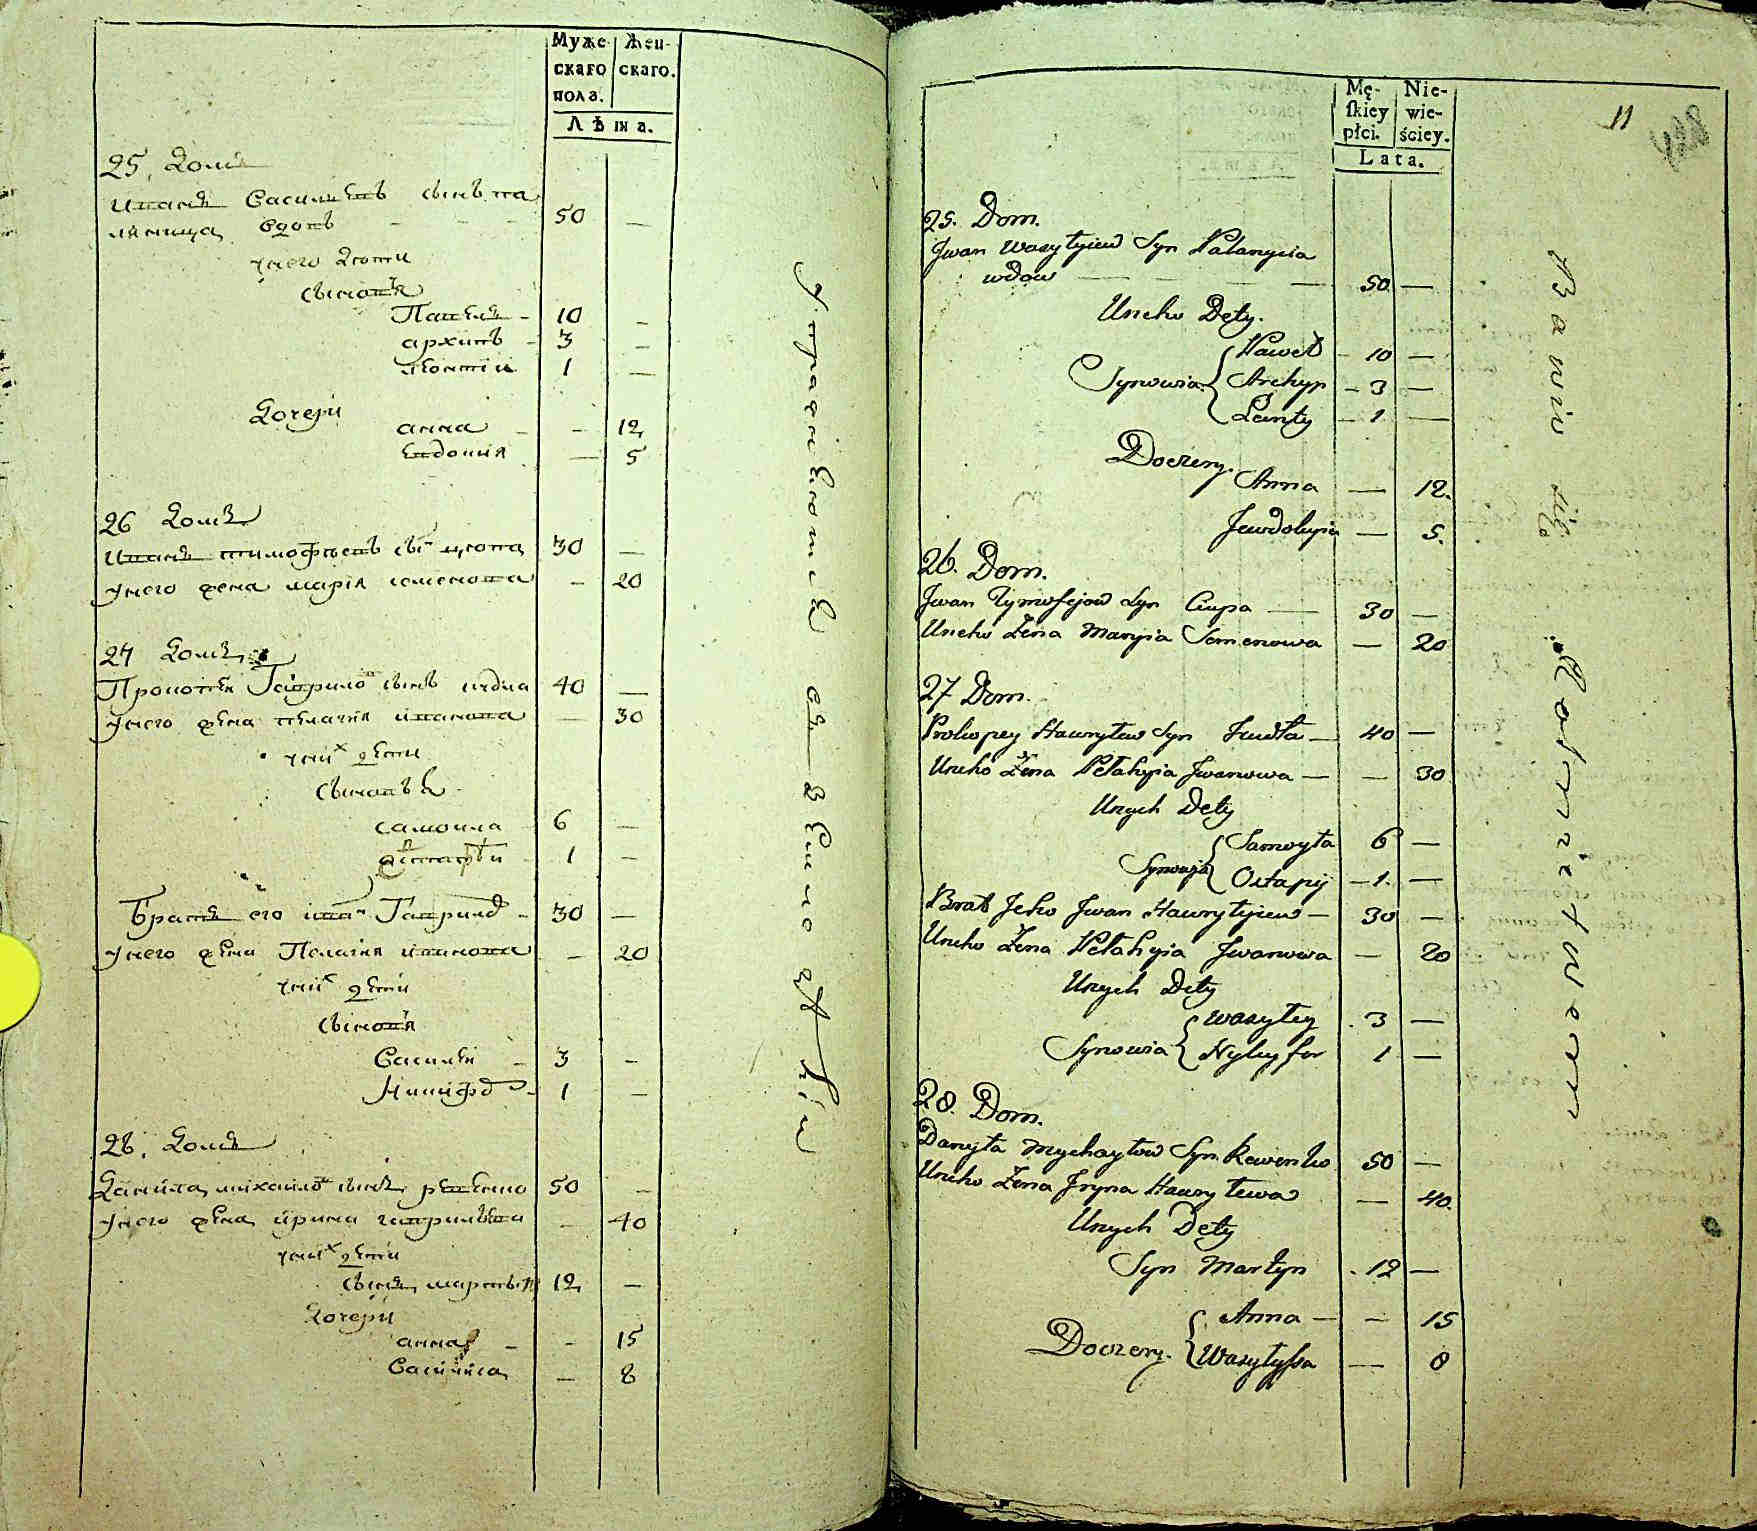 Муже-
скаго
пола.
Жен-
скаго.
Лѣта.
25. Домъ
Иванъ Василиевъ сынъ па
ляница вдовъ - - - 50 —
у него дѣти
сыновя
Павелъ - 10 —
архипъ - 3 —
леонтіи 1 —
Дочери
анна - - 12
евдокия — 5
26 Домъ
Иванъ тимофѣевъ сынъ цюпа 30 —
у него жена мария семенова - 20
27 Домъ
Прокопеи Гаврило сынъ 40 —
у него жена пелагия иванова — 30
у них дѣти
сыновъя
самоила 6 —
- 1 —
Братъ его Гаврилов - 30 —
у него жена Пелагия иванова - 20
у них дѣти
сыновя
Василеи - 3 -
Никифор - 1 —
28. Домъ
Данила михаило сынъ ревенко 50 —
у него жена ирина гаврилева - 40
у них дѣти
сынъ мартын 12 —
Дочери
анна - - 15
Василиса - 8
Управление ее
Mę-
ſkiey
płci.
Nie-
wie-
ściey.
Lata.
11
25. Dom.
Jwan Wasylyiew Syn Palanycia
wdow — — 50 —
Uneho Dety.
Synowia { Paweł - 10 —
Archyp - 3 —
Lewnty - 1 —
Doczery.
Anna — 12.
Jewdokyia — 5.
26. Dom.
Jwan Tymofejow Syn Ciupa — 30 —
Uneho Żena Maryia Semenowa — 20
27 Dom.
Prokopey Hawrylew Syn — 40 —
Uneho Żena Pełahyia Jwanowa — — 30
Unych Dety
Synowja { Samoyła 6 —
Ostapij - 1. —
Brat Jeho Jwan Hawrylyiew — 30 —
Uneho Żena Pełahyia Jwanowa — 20
Unych Dety
Synowia { Wasyley . 3 —
Nykyfor 1 —
28. Dom.
Danyła Mychayłow Syn Rewenko 50 —
Uneho Żena Jryna Hawrylewa — 40.
Unych Dety
Syn Martyn . 12 —
Doczery. { Anna — — 15
Wasylyssa — 8
Bawią się